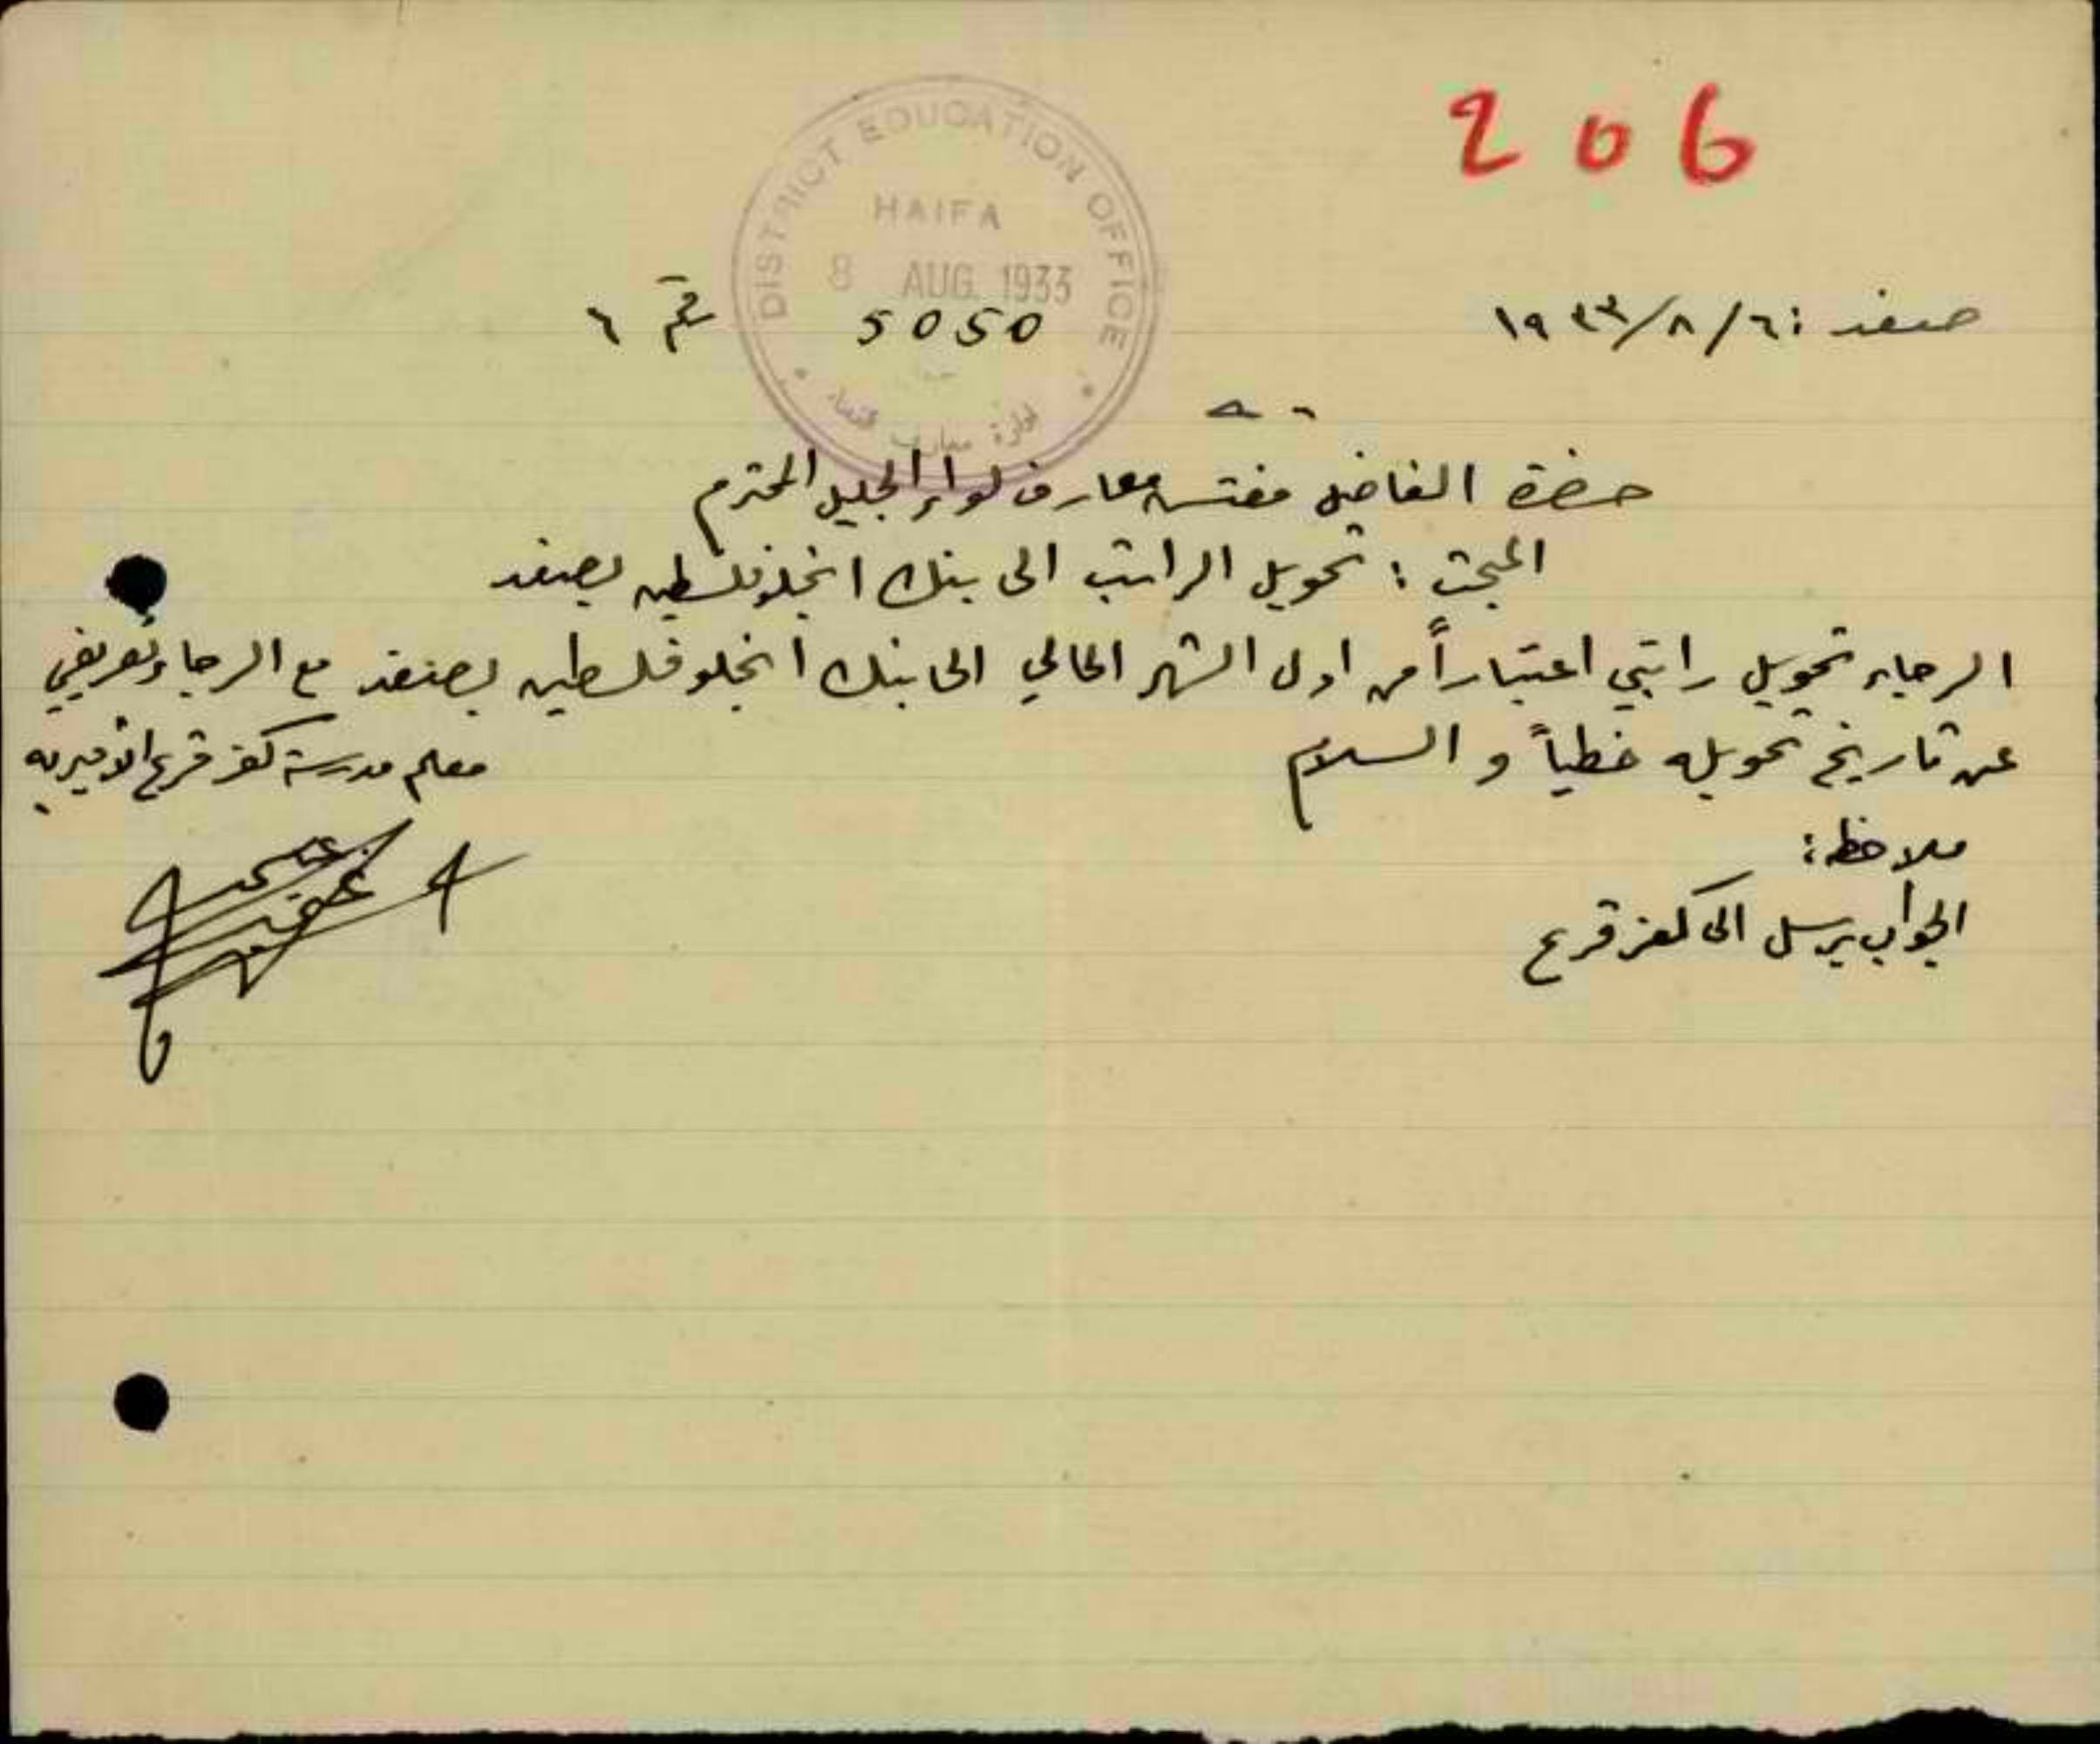 206
DISTRICT EDUCATION OFFICE
HAIFA
8 AUG. 1933
صفد : ٦/ ٨/ ١٩٣٣
5050
رقم ٦
ادارة معارف
حضرة الفاضل مفتش معارف لواء الجليل المحترم
المبحث : تحويل الراتب الى بنك انجلو فلسطين بصفد
الرجاء تحويل راتبي اعتباراً من اول الشهر الحالي الى بنك انجلو فلسطين بصفد مع الرجاء تعريفي
عن تاريخ تحويله خطياً و السلام
معلم مدرسة كفر قرع الاميرية
ملاحظة :
الجواب يرسل الى كفر قرع